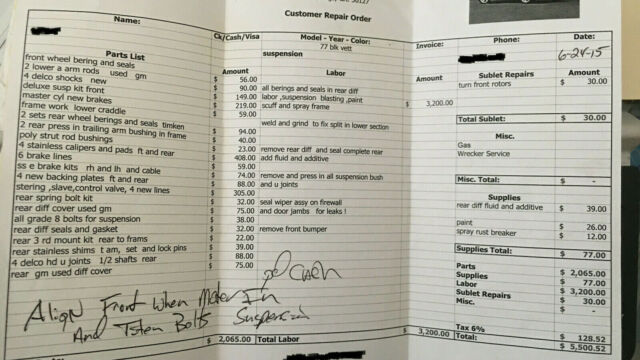 Customer Repair Order
Name:
Ck/Cash/Visa
Model - Year - Color:
77 blk vett
suspension
Invoice:
Phone:
Date:
6-24-15
Parts List
Amount
Labor
Amount
Sublet Repairs
Amount
front wheel bering and seals $ 56.00
2 lower a arm rods used gm $ 90.00
4 delco shocks new $ 149.00
deluxe susp kit front $ 219.00
master cyl new brakes $ 59.00
frame work lower craddle
2 sets rear wheel berings and seals timken $ 94.00
2 rear press in trailing arm bushing in frame $ 40.00
poly strut rod bushings $ 23.00
4 stainless calipers and pads ft and rear $ 408.00
6 brake lines $ 59.00
ss e brake kits rh and lh and cable $ 74.00
4 new backing plates ft and rear $ 88.00
stering ,slave,control valve, 4 new lines $ 305.00
rear spring bolt kit $ 32.00
rear diff cover used gm $ 75.00
all grade 8 bolts for suspension $ 38.00
rear diff seals and gasket $ 32.00
rear 3 rd mount kit rear to frams $ 22.00
rear stainless shims t am, set and lock pins $ 39.00
4 delco hd u joints 1/2 shafts rear $ 88.00
rear gm used diff cover $ 75.00
all berings and seals in rear diff
labor ,suspension blasting ,paint $ 3,200.00
scuff and spray frame
weld and grind to fix split in lower section
remove rear diff and seal complete rear
add fluid and additive
remove and press in all suspension bush
and u joints
seal wiper assy on firewall
and door jambs for leaks !
remove front bumper
turn front rotors $ 30.00
Total Sublet: $ 30.00
Misc.
Gas
Wrecker Service
Misc. Total: $ -
Supplies
rear diff fluid and additive $ 39.00
paint $ 26.00
spray rust breaker $ 12.00
Supplies Total: $ 77.00
Parts $ 2,065.00
Supplies $ 77.00
Labor $ 3,200.00
Sublet Repairs $ 30.00
Misc. $ -
Tax 6% $ 128.52
Total: $ 5,500.52
pd Cash
Align Front When Motor In
And Tsten Bolts Suspension
$ 2,065.00 Total Labor $ 3,200.00